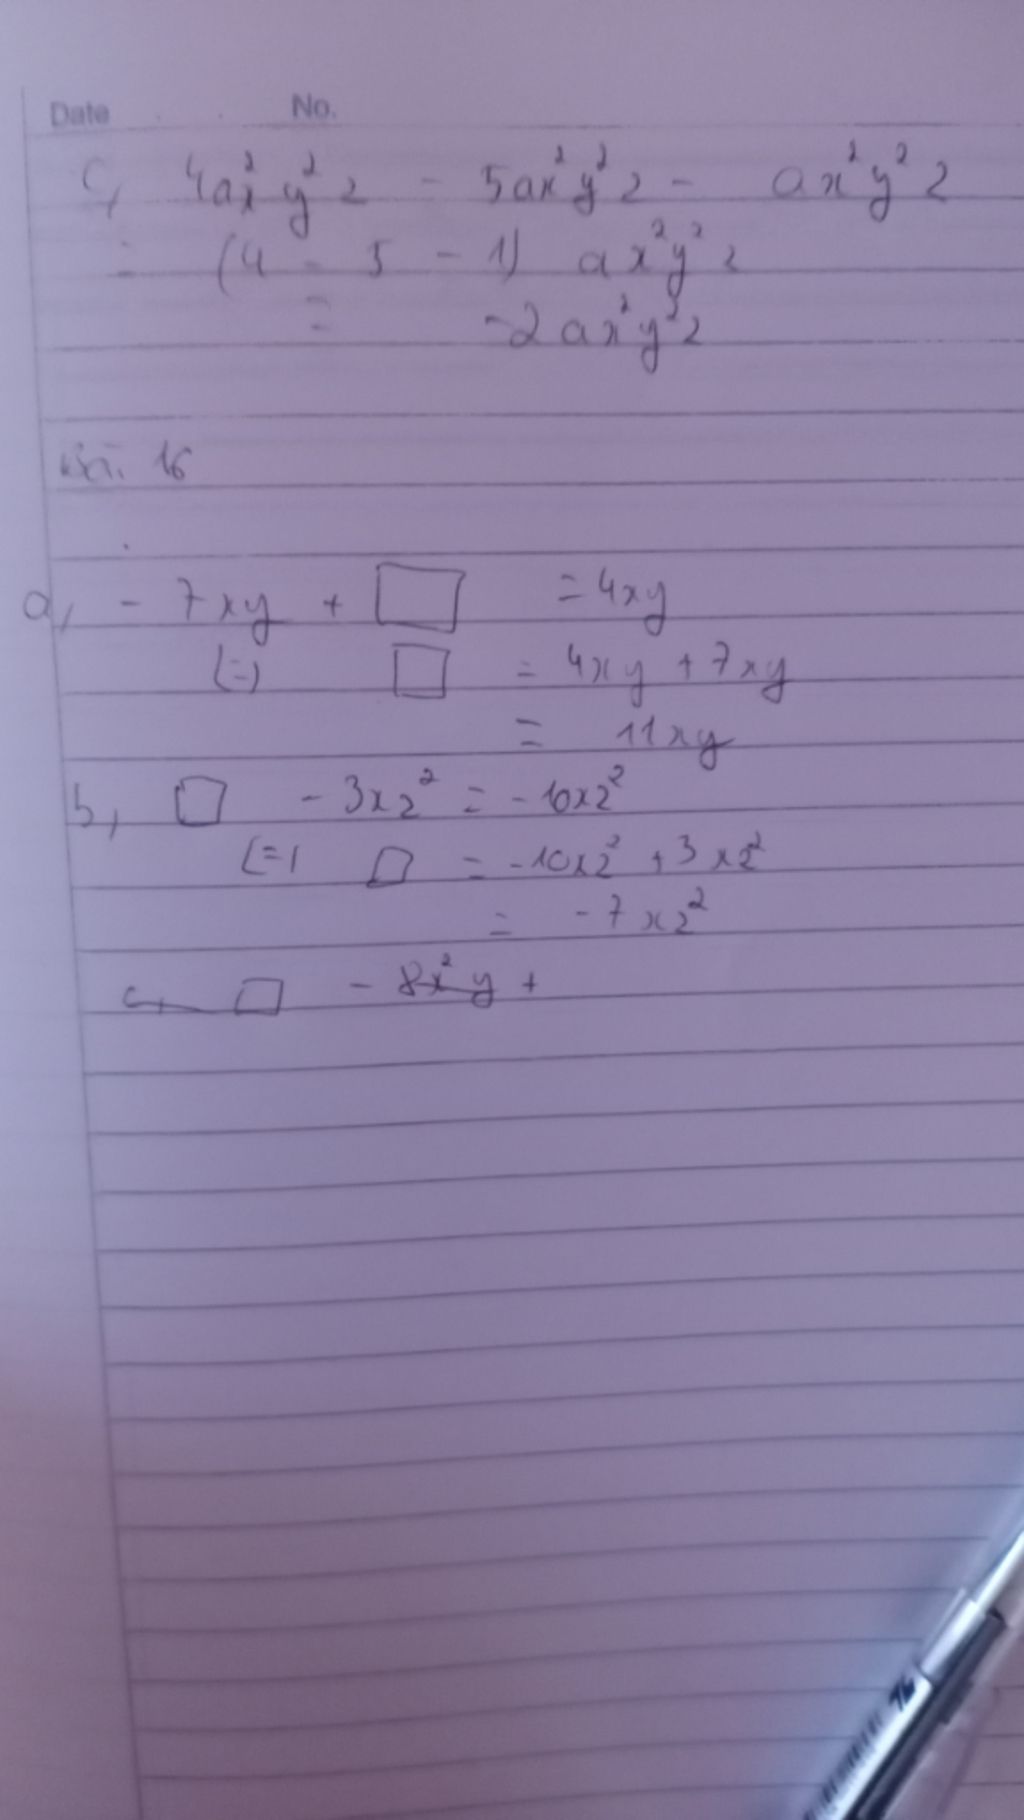 Date No.
c, 4ax²y²z - 5ax²y²z - ax²y²z
= (4 - 5 - 1) ax²y²z
= -2ax²y²z
Bài 16
a, - 7xy + □ = 4xy
(=) □ = 4xy + 7xy
= 11xy
b, □ - 3xz² = - 10xz²
(=) □ = -10xz² + 3xz²
= - 7xz²
c, □ - 8x²y +